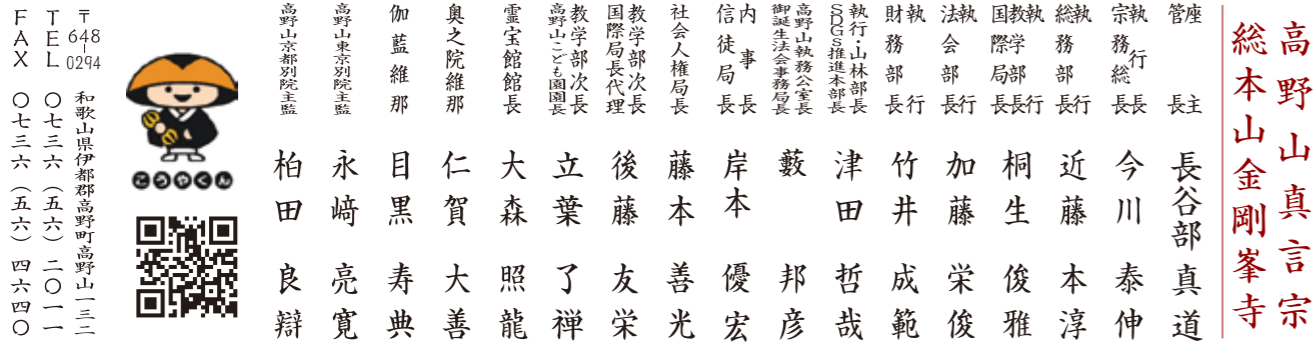 高野山真言宗
総本山金剛峯寺
座主
管長
長谷部真道
執行長
宗務総長
今川泰伸
執行
総務部長
近藤本淳
執行
教学部長
国際局長
桐生俊雅
執行
法会部長
加藤栄俊
執行
財務部長
竹井成範
執行・山林部長
SDGs推進本部長
津田哲哉
高野山執務公室長
御誕生法会事務局長
藪邦彦
内事長
信徒局長
岸本優宏
社会人権局長
藤本善光
教学部次長
国際局長代理
後藤友栄
教学部次長
高野山こども園園長
立葉了禅
霊宝館館長
大森照龍
奥之院維那
仁賀大善
伽藍維那
目黒寿典
高野山東京別院主監
永﨑亮寛
高野山京都別院主監
柏田良辯
こうやくん
〒648-0294
和歌山県伊都郡高野町高野山一三二
TEL 〇七三六(五六)二〇一一
FAX 〇七三六(五六)四六四〇